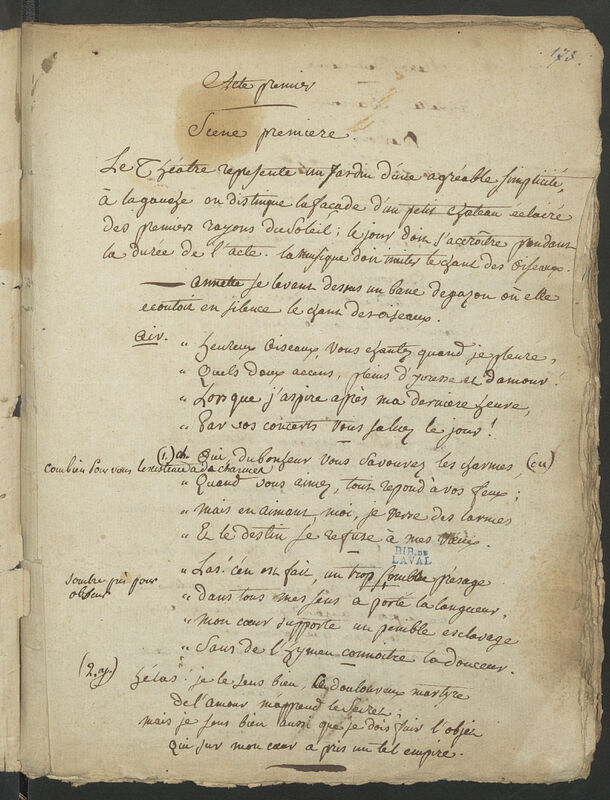 173.
Acte premier
Scene premiere.
Le Théatre represente un Jardin d'une agréable simplicité,
à la gauche on distingue la façade d'un petit chateau éclairé
des premiers rayons du Soleil; le jour doit s'acroître pendant
la durée de l'acte. la musique doit imiter le chant des Oiseaux.
— annette se levant dessus un banc de gazon où elle
ecoutoit en silence le chant des oiseaux.
air. " heureux Oiseaux, vous chantez quand je pleure,
" Quels doux accens, pleins d'yvresse et d'amour!
" Lorsque j'aspire après ma derniere heure,
" Par vos concerts vous saluez le jour!
(1.) Oui, du bonheur vous savourez les charmes, (ou)
Combien pour vous l'existence a de charmes
" Quand vous aimez, tout repond à vos feux;
" Mais en aimant, moi, je verse des larmes
" Et le destin se refuse à mes vœux.
BIB. DE
LAVAL
" Las! c'en est fait, un trop sombre présage
sombre pris pour
obscur
" Dans tous mes sens a porté la langueur,
" Mon cœur supporte un penible esclavage
" Sans de l'hymen connoitre la douceur.
(2. ) hélas! je le sens bien, douloureux martyre
de l'amour m'apprend le Secret;
mais je sens bien aussi que je dois fuir l'objet
qui sur mon cœur a pris un tel empire.